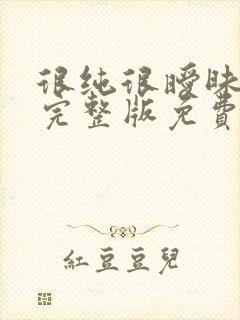 很纯很暧昧
完整版免費
紅豆豆兒